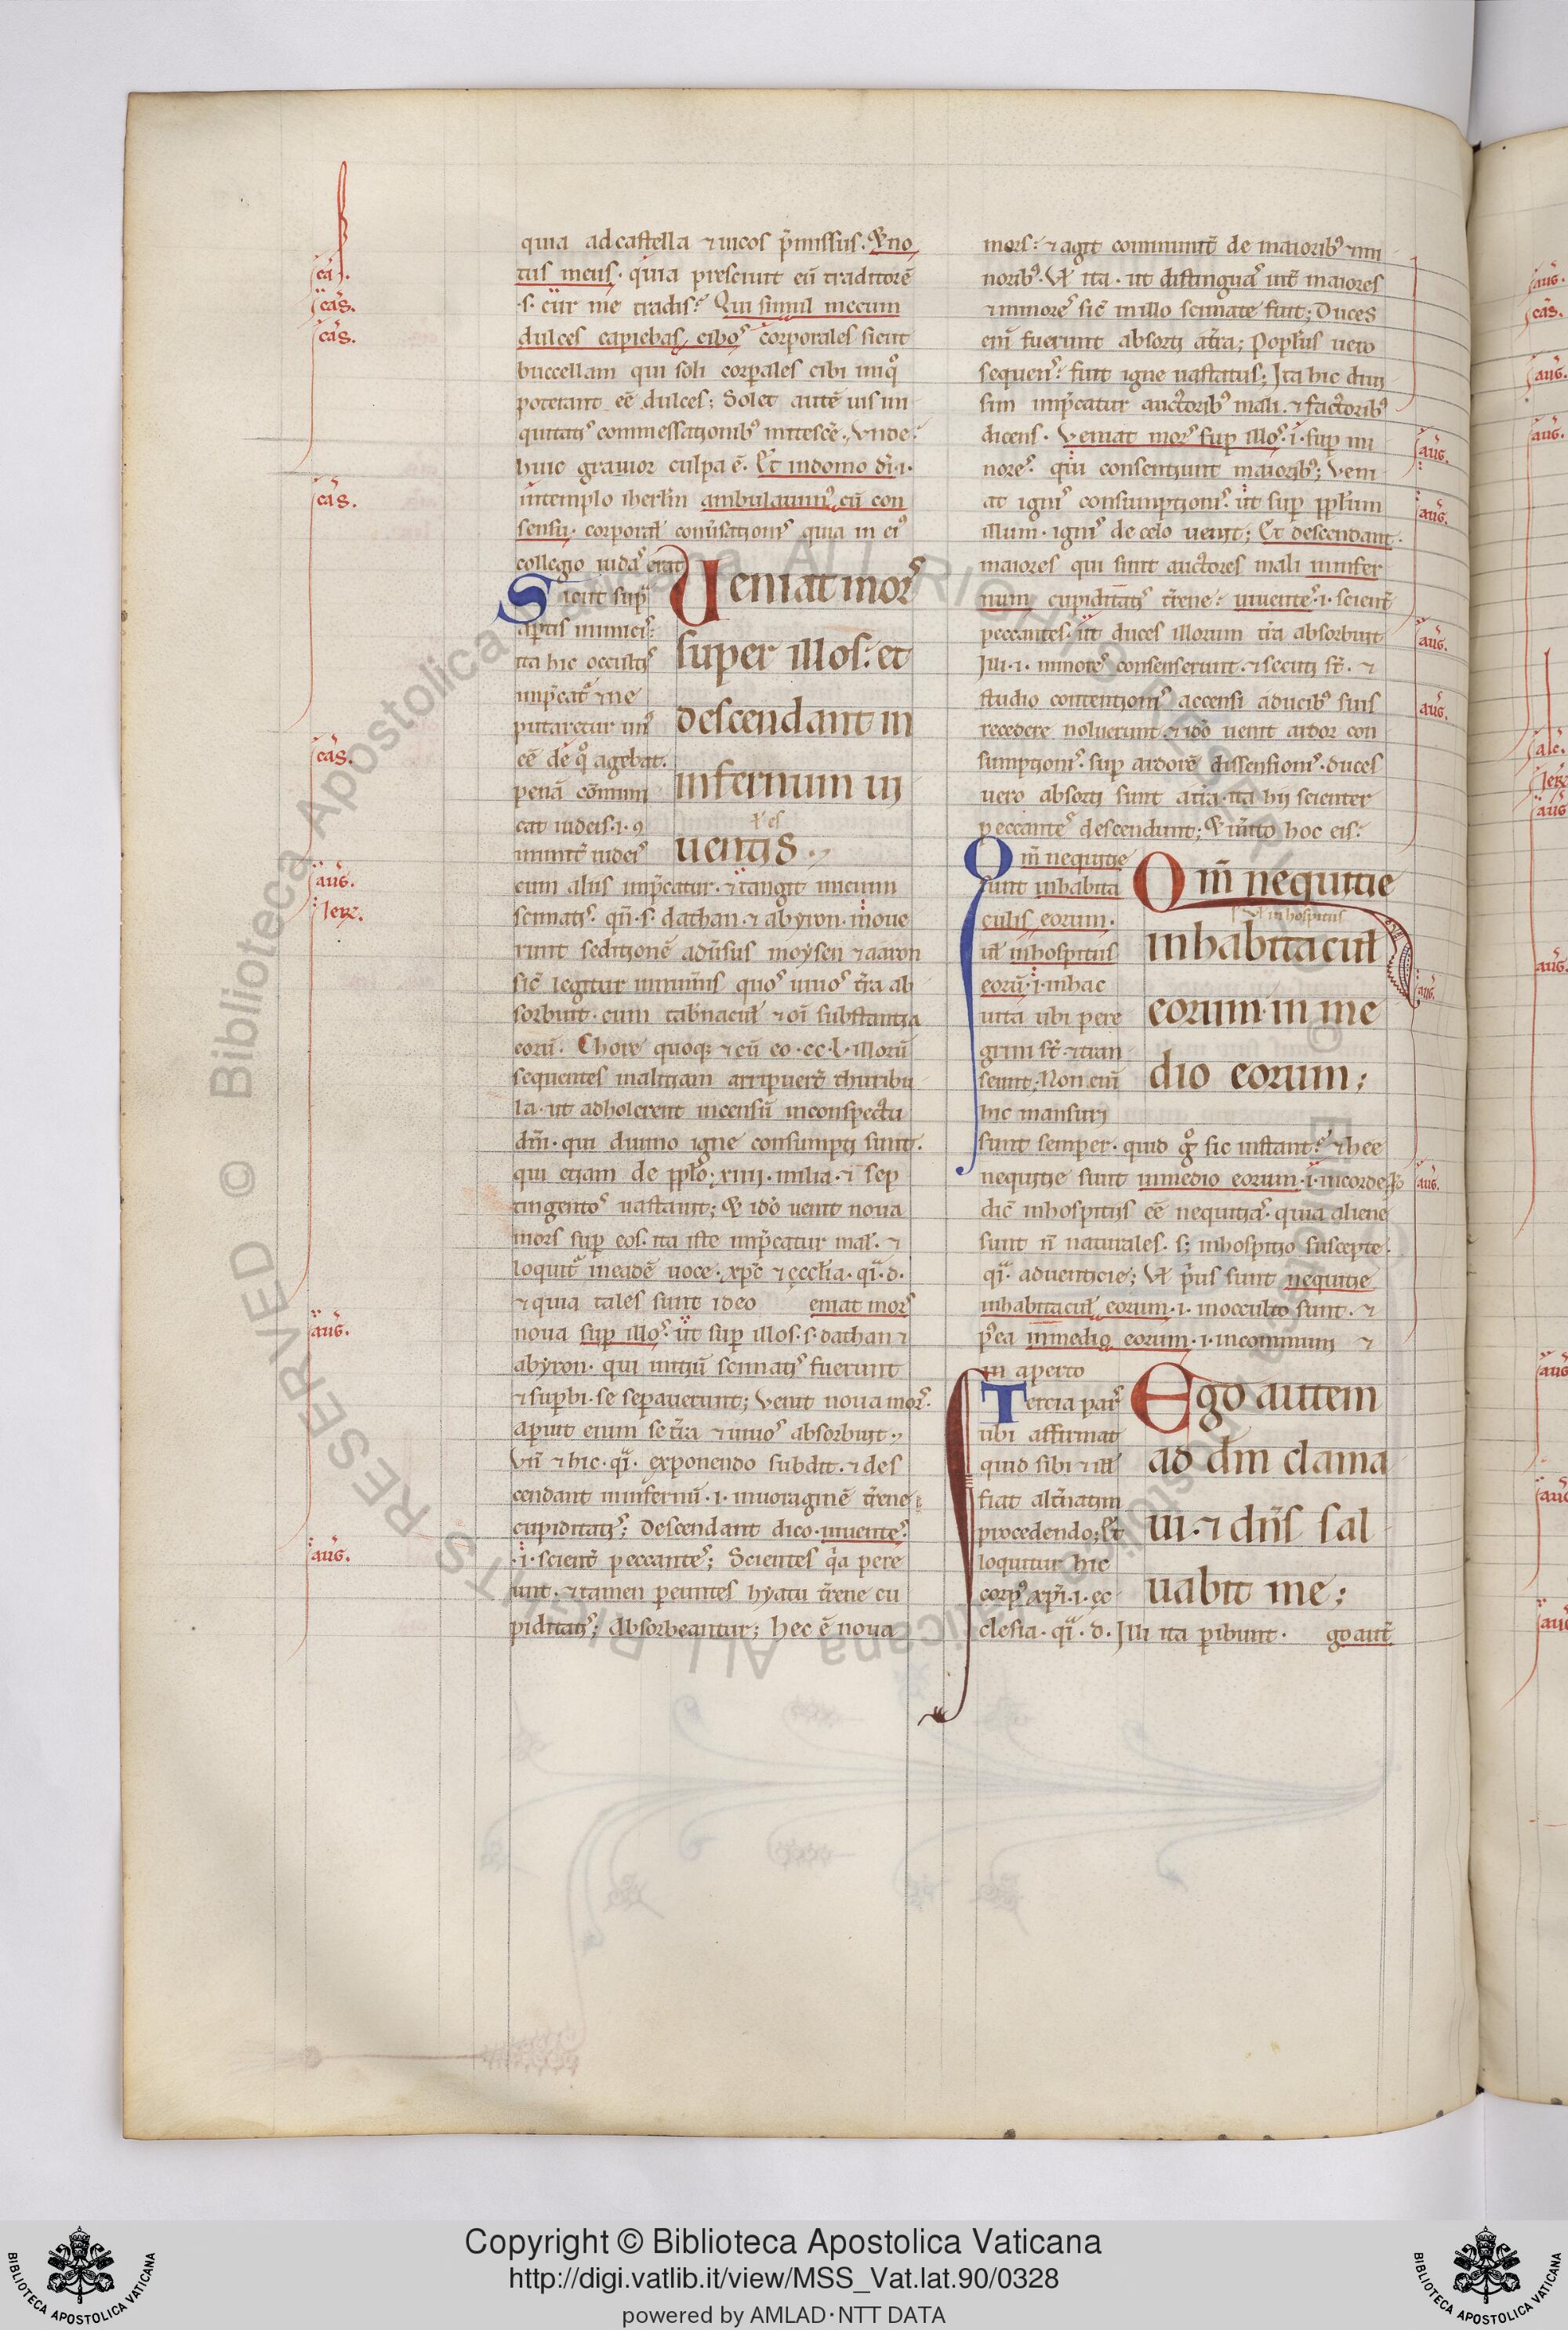 quia ad castella ⁊ uicos p̄missus. ⁊ no
tus meus. quia presciuit eū traditorē
.s. cur me tradis? Qui simul mecum
dulces capiebas cibos corporales sicut
buccellam qui soli corꝑales cibi iniqͦ
poterant eē dulces; Solet autē uis ini
quitatis commessationibꝰ mitescē. Vnde
huic grauior culpa ē. Et in domo dī .i.
in templo iherlm̄ ambulauimꝰ cū con
sensu. corporal̄ conūsationis quia in eiꝰ
collegio iudas erat
Sicut sup̄
aptis inimicis
ita hic occultis
imp̄catᷣ ⁊ ne
putaretur unꝰ
eē de qͦ agebat.
penā cōmuni
cat iudeis .i. 9
munit̄ iudeis
Ueniat mors
super illos: et
descendant in
infernum ui
uentes
cum aliis imp̄catur. ⁊ tangit inicium
scismatis. qn̄ .s. dathan ⁊ abyron moue
runt seditionē adūsus moysen ⁊ aaron
sic̄ legitur in numis quos uiuos t̄ra ab
sorbuit. cum tab̄nacul̄ ⁊ oī substantia
eorū. Chore quoqꝫ ⁊ cū eo .cc.l. illorū
sequentes malitiam arripuert̄ thuribu
la. ut adholerent incensū in conspectu
dn̄i. qui diuino igne consumpti sunt.
qui etiam de ppl̄o; xiiii. milia. ⁊ sep
tingentos uastauit; ⁊ idō uenit noua
mors sup eos. ita iste imp̄catur mal̄. ⁊
loquit̄ in eadē uoce. xp̄c ⁊ eccl̄ia. qͣi .d.
⁊ quia tales sunt ideo eniat mors
noua sup illos. ut sup illos .s. dathan ⁊
abyron. qui initiū scismatis fuerunt
⁊ supbi. se separauerunt; Venit noua mors.
aperuit enim se t̄ra ⁊ uiuos absorbuit.
Vn̄ ⁊ hic. qͣi. exponendo subdit. ⁊ des
cendant in infernū .i. in uoraginē t̄rene
cupiditatis; Descendant dico. uiuentes
.i. scient̄ peccantes; Scientes qͣa pere
unt. ⁊ tamen pereuntes hyatu t̄rene cu
piditatis; Absorbeantur; hec ē noua
mors. ⁊ agit communit̄ de maioribꝰ ⁊ mi
noribꝰ. Vl̄ ita. ut distinguaᷣ int̄ maiores
⁊ minores sic̄ in illo scismate fuit; Duces
enī fuerunt absorti at̄ra; Popl̄us uero
sequens fuit igne uastatus; Ita hic diui
sim imp̄catur auctoribꝰ mali. ⁊ factoribꝰ
dicens. Veniat mors sup illos .i. sup mi
nores. qui consentiunt maioribꝰ; Veni
at ignis consumptionis. ut sup ppl̄um
illum. ignis de celo uenit; Et descendant
maiores qui sunt auctores mali in infer
num cupiditatis t̄rene. uiuentes .i. scient̄
peccantes. ut duces illorum t̄ra absorbuit
Illi .i. minores consenserunt. ⁊ secuti st̄. ⁊
studio contentionis accensi aducibꝰ suis
recedere noluerunt. ⁊ idō uenit ardor con
sumptionis. sup ardorē dissensionis. duces
uero absorti sunt at̄ra. ita hii scienter
peccantes descendunt; ⁊ m̄ito hoc eis.
Qm̄ nequitie
sunt inhabita
culis eorum.
ul̄ in hospitiis
eorū .i. in hac
uita ubi pere
grini st̄. ⁊ tran
seunt; Non enī
hic mansuri
Qm̄ nequitie
ul̄ in hospitiis
in habitacul̄
eorum. in me
dio eorum;
sunt semper. quid gͦ sic instant? ⁊ hee
nequitie sunt in medio eorum .i. in corde.
dic̄ in hospitiis eē nequitias. quia aliene
sunt n̄ naturales. sꝫ in hospitio suscepte.
qͣi. aduenticie; Vl̄ p̄us sunt nequitie
in habitacul̄ eorum .i. in occulto sunt. ⁊
p̄ea in medio eorum .i. in communi ⁊
in aperto
Tercia pars
ubi affirmat
quid sibi ⁊ ill̄
fiat alt̄natim
procedendo; Et
loquitur hic
corpꝰ xp̄i .i. ec
Ego autem
ad dm̄ clama
ui. ⁊ dn̄s sal
uabit me;
clesia. qͣi .d. Illi ita peribunt. go aut̄
ca.
cas.
cas.
cas.
cas.
aug.
Iere.
aug.
aug.
aug.
aug.
aug.
aug.
aug.
aug.
Copyright © Biblioteca Apostolica Vaticana
http://digi.vatlib.it/view/MSS_Vat.lat.90/0328
powered by AMLAD·NTT DATA
BIBLIOTECA APOSTOLICA VATICANA
BIBLIOTECA APOSTOLICA VATICANA